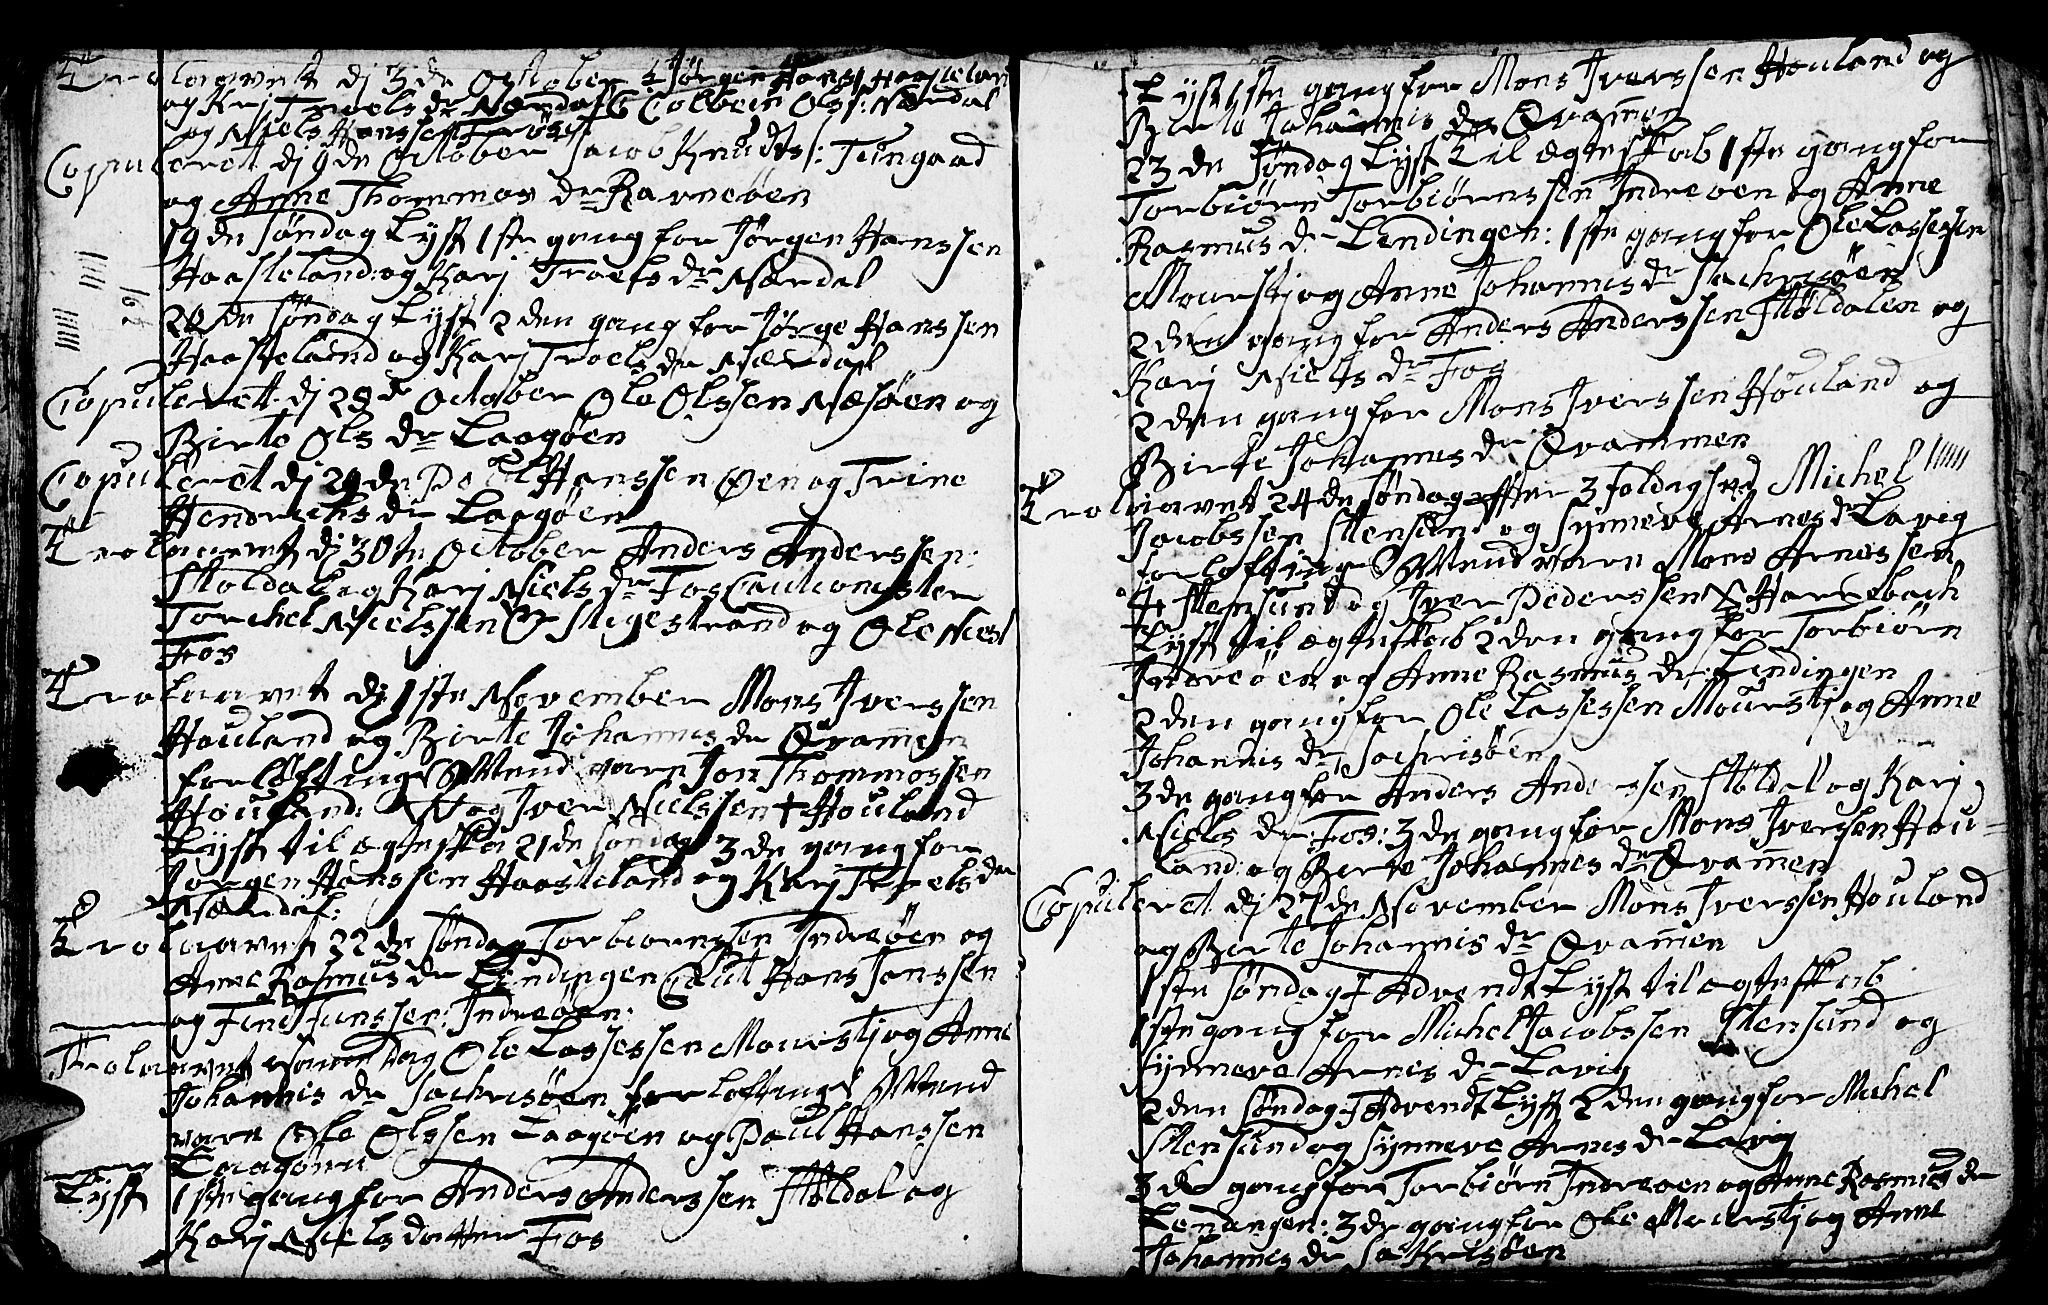 Trolaavet dj 3 de October Jørgen Hanss Haasteland
og Karj Troels dr Nærdal Colbein Ols: Nærdal
og Niels Hanssen
Copuleret dj 9 de October Jacob Knudts: Tungaad
og Anne Thommos dr Ravneøen
19 de Søndag Lyst 1 ste gang for Jørgen Hanssen
Haasteland: og Karj Troels dr Nærdal
20 de Søndag Lyst 2 den gang for Jørge Hanssen
Haasteland og Karj Troels dr Nærdal
Copuleret dj 28 de October Ole Olssen Næsøen og
Birte Ols dr Laagøen
Copuleret dj 29 de Poul Hanssen Øen og Trine
Hendrichs dr Laagøen
Trolaavet dj 30 te October Anders Anderssen:
Støldal og Karj Niels dr Fos Cautionister
Torchel Nielssen Stigestrand og Ole Niels
Fos
Trolaavet dj 1 ste November Mons Iverssen
Høuland og Birte Johannis dr Qvamen
forløftings Mænd vare Jon Thommossen
Høuland: og Iver Nielssen Høuland
Lyst til ægteska 21 de Søndag 3 de gang for
Jørgen Hanssen Haasteland og Karj Troels dr
Nærdal:
Trolaavet 22 de Søndag Torbiørnssen Indreøen og
Anne Rasmus dr Lendingen Caut Hans Janssen
og Find Janssen: Indreøen:
Trolaavet samme Dag Ole Lassessen Mourstj og Anne
Johannis dr Sachrisøen forløftings Mænd
vare Ole Olssen Laagøen og Poul Hanssen
Laagøen
Lyst 1 ste gang for Anders Anderssen Støldal og
Karj Niels datter Fos
Lyst 1 ste gang for Mons Iverssen Høuland og
Birte Johannis dr Qvamen
23 de Søndag Lyst til ægteskab 1 ste gang for
Torbiørn Torbiørnssen Indreøen og Anne
Rasmus dr Lendingen: 1 ste gang for Ole Lassessen
Mourstj og Anne Johannis dr Sachrisøen
2 den gang for Anders Anderssen Støldalen og
Karj Niels dr Fos
2 den gang for Mons Iverssen Høuland og
Birte Johannis dr Qvammen
Trolaavet 24 de Søndag efter 3 foldighed Michel
Jacobssen Stensund og Synneve Arnes dr Lavig
forløftings Mænd vare Mons Arnessen
Stensund og Iver Pederssen Harrebach
Lyst til ægteskab 2 den gang for Torbiørn
Indreøen og Anne Rasmus dr Lendingen
2 den gang for Ole Lassessen Mourstj og Anne
Johannis dr Sachrisøen
3 de gang for Anders Anderssen Støldal og Karj
Niels dr: Fos: 3 de gang for Mons Iverssen Hou=
land: og Berte Johannes dr Qvamen
Copuleret dj 27 de November Mons Iverssen Høuland
og Berte Johannis dr Qvamen
1 ste Søndag J Advendt Lyst til ægteskab
1 ste gang for Michel Jacobssen Stensund og
Synneve Arnes dr Lavig
2 den Søndag J Advendt Lyst 2 den gang for Michel
Stensund og Synneve Arnes dr Lavig
3 de gang for Torbiørn Indreøen og Anne Rasmus dr
Lendingen: 3 de gang for Ole Mourstj og Anne
Johannes dr Sakrisøen